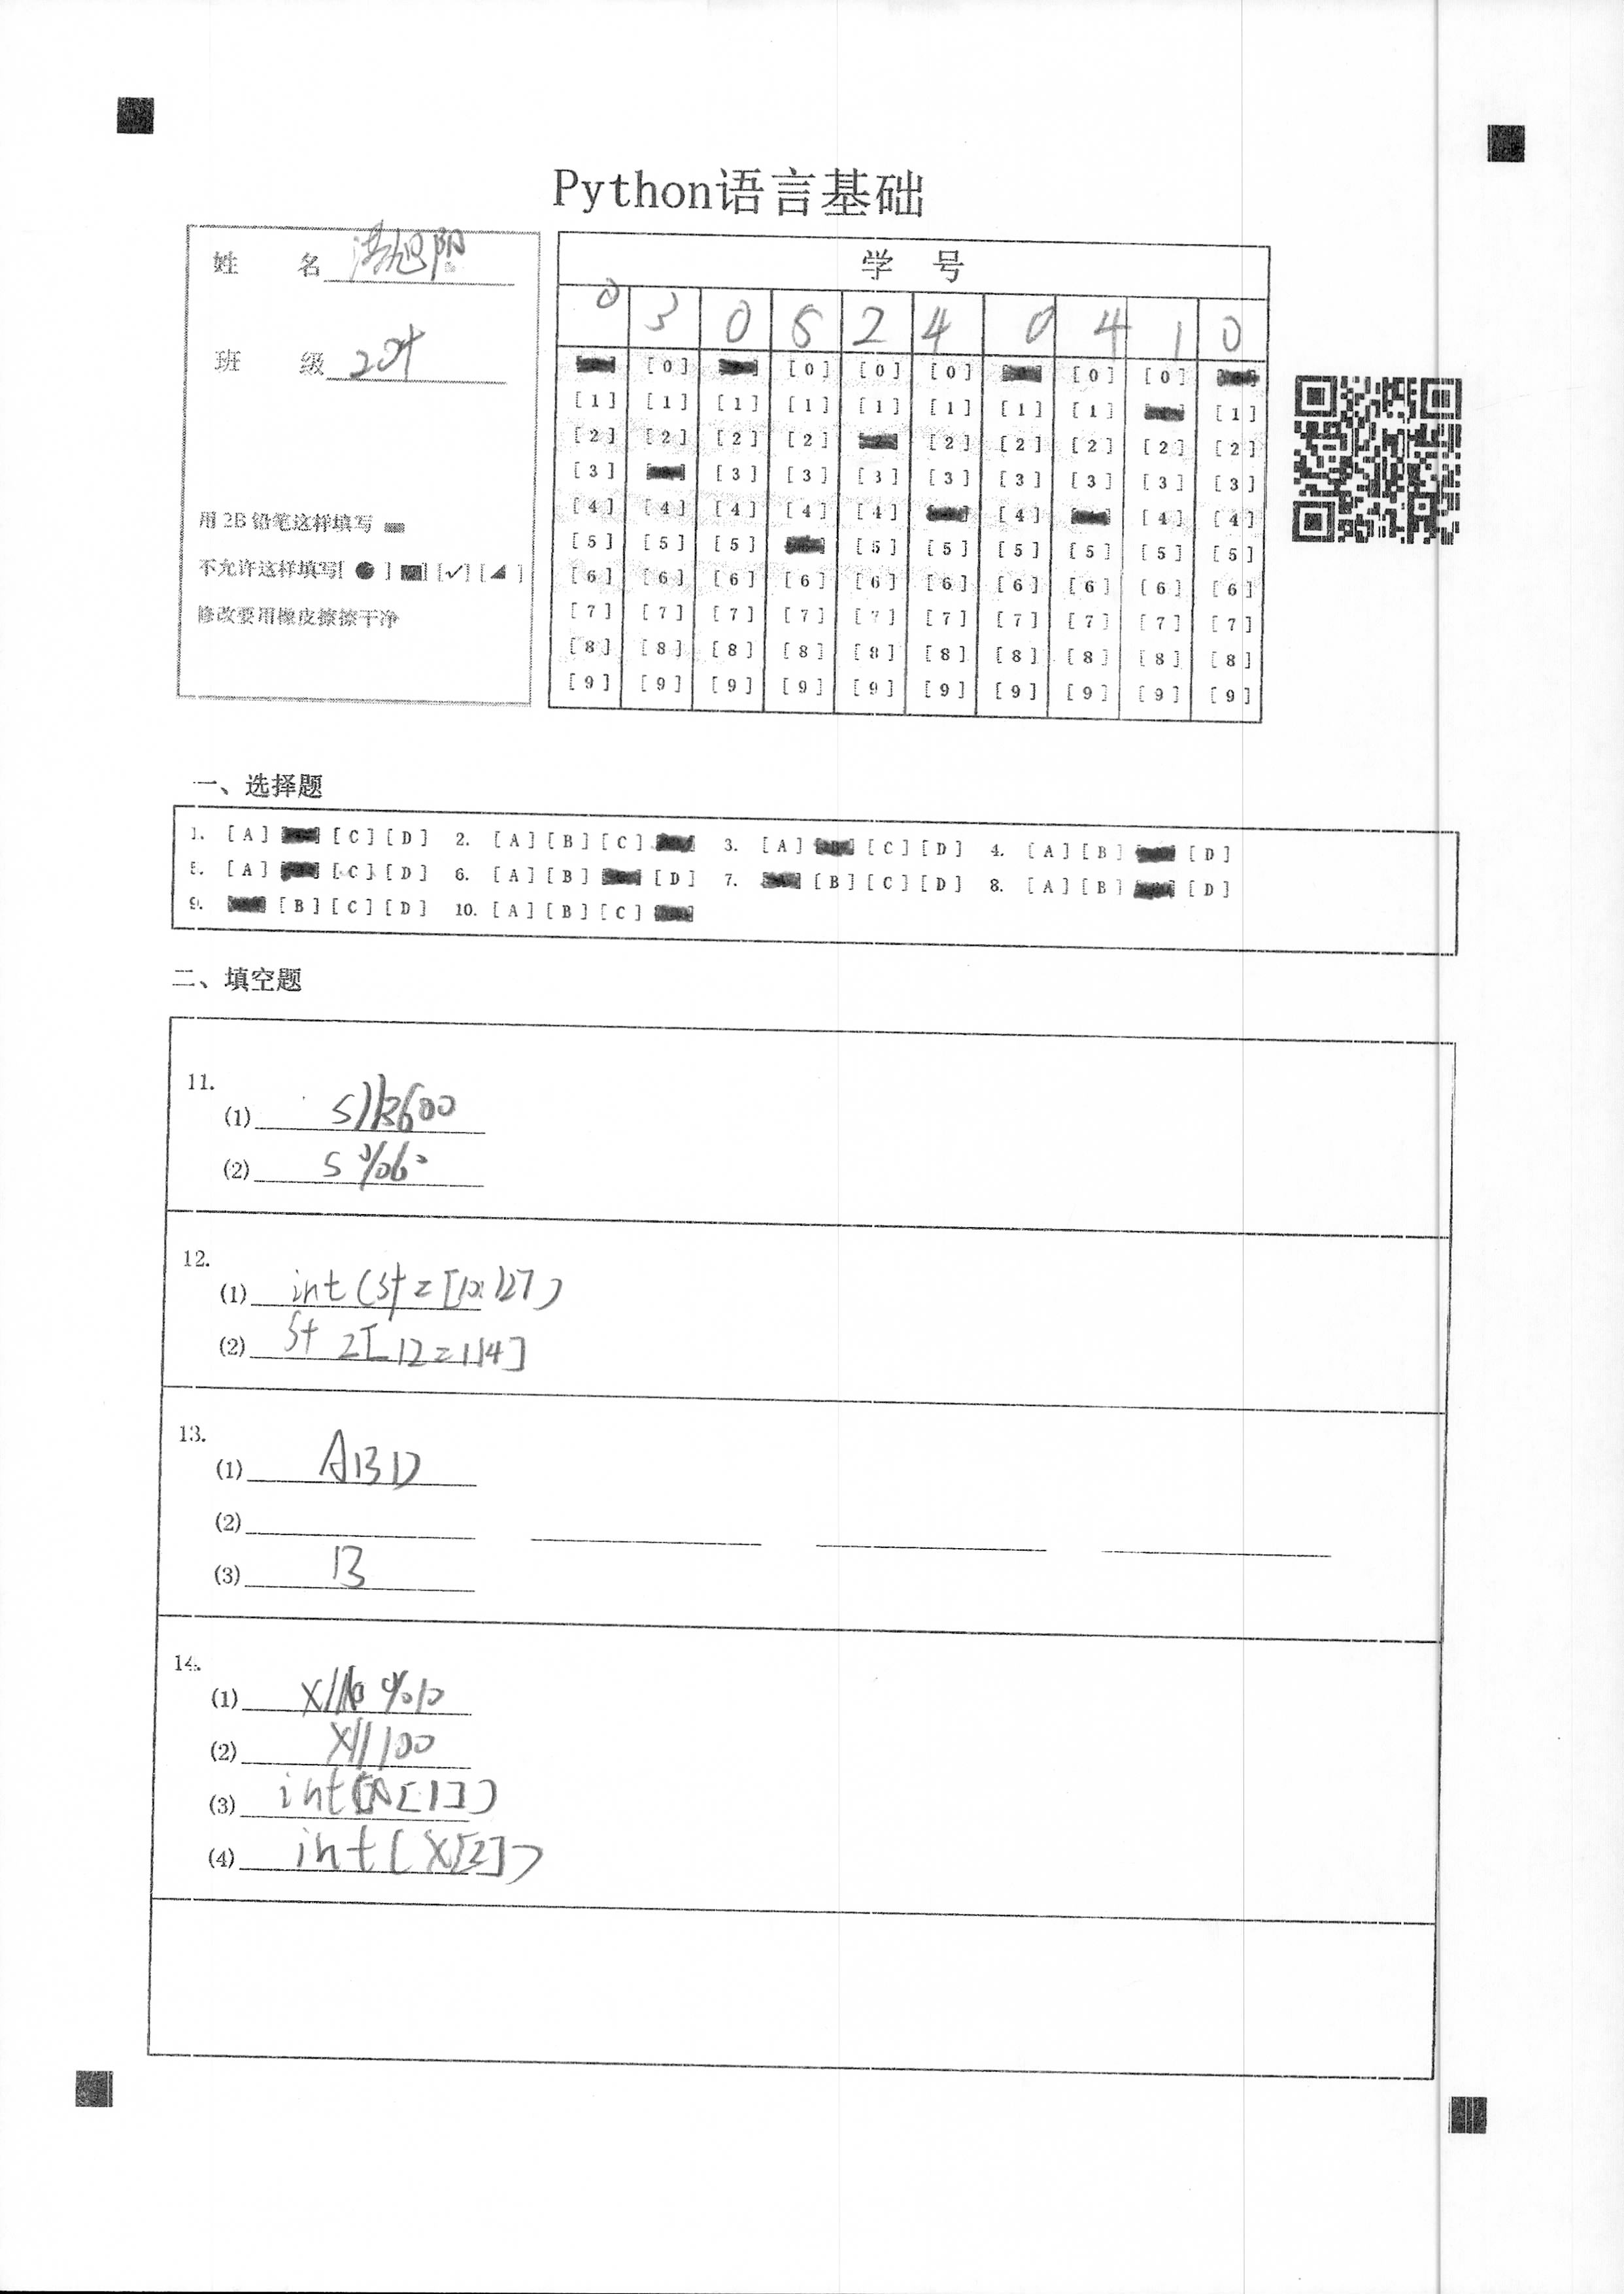 Python语言基础
姓 名 旭阳
班 级 204
用 2B 铅笔这样填写
不允许这样填写[ ● ] [■] [✓] [◢ ]
修改要用橡皮擦擦干净
学 号
0 3 0 5 2 4 0 4 1 0
[0] [0] [0] [0] [0] [0]
[1] [1] [1] [1] [1] [1] [1] [1] [1]
[2] [2] [2] [2] [2] [2] [2] [2] [2]
[3] [3] [3] [3] [3] [3] [3] [3] [3]
[4] [4] [4] [4] [4] [4] [4] [4]
[5] [5] [5] [5] [5] [5] [5] [5] [5]
[6] [6] [6] [6] [6] [6] [6] [6] [6] [6]
[7] [7] [7] [7] [7] [7] [7] [7] [7] [7]
[8] [8] [8] [8] [8] [8] [8] [8] [8] [8]
[9] [9] [9] [9] [9] [9] [9] [9] [9] [9]
一、选择题
1. [A] [C] [D] 2. [A] [B] [C] 3. [A] [B] [C] [D] 4. [A] [B] [D]
5. [A] [C] [D] 6. [A] [B] [D] 7. [B] [C] [D] 8. [A] [B] [D]
9. [B] [C] [D] 10. [A] [B] [C]
二、填空题
11.
(1) s//3600
(2) s%60
12.
(1) int(st=[12:127)
(2) St 2[12=114]
13.
(1) ABD
(2)
(3) B
14.
(1) x//10%10
(2) x//100
(3) int(x[1])
(4) int[x[2])